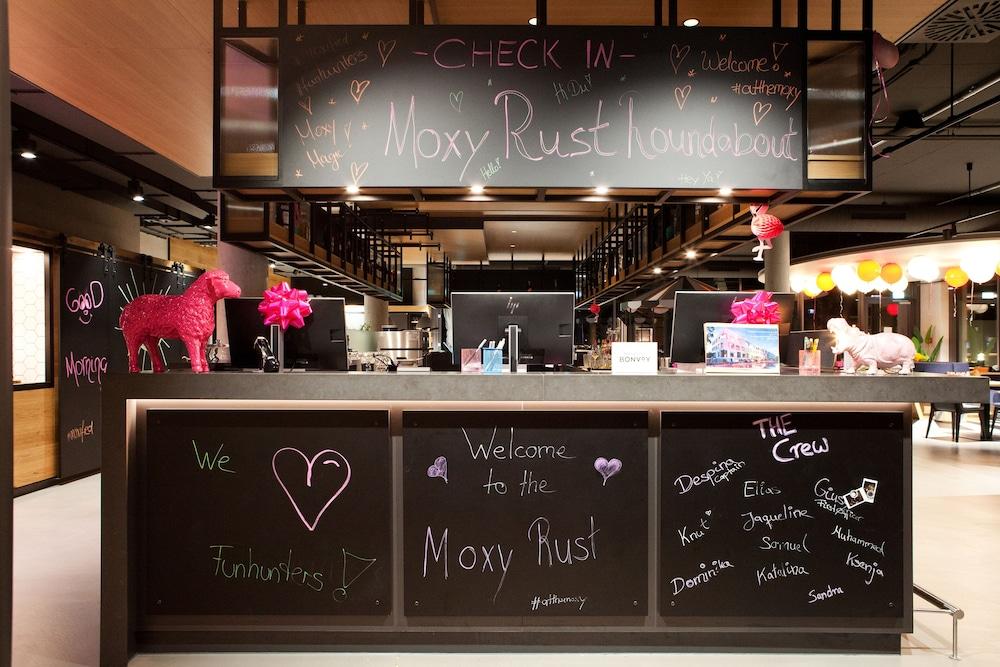 -CHECK IN-
#funhunters
Moxy
Magic!
Hi Du!
Welcome!
#atthemoxy
Moxy Rust houndabout
Hello!
Hey Ya!
GooD
Morning
hp
BONVOY
We
Funhunters!
Welcome
to the
Moxy Rust
#atthemoxy
THE
Crew
Despina
Captain
Elias
Knut
Jaqueline
Samuel
Muhammad
Dominika
Katalina
Ksenja
Sandra